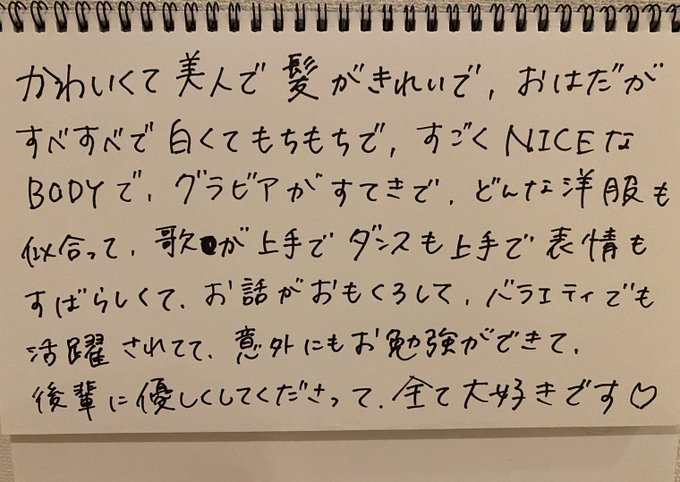 かわいくて美人で髪がきれいで、おはだが
すべすべで白くてもちもちで、すごくNICEな
BODYで、グラビアがすてきで、どんな洋服も
似合って、歌が上手でダンスも上手で表情も
すばらしくて、お話がおもくろして、バラエティでも
活躍されてて、意外にもお勉強ができて、
後輩に優しくしてくださって、全て大好きです♡